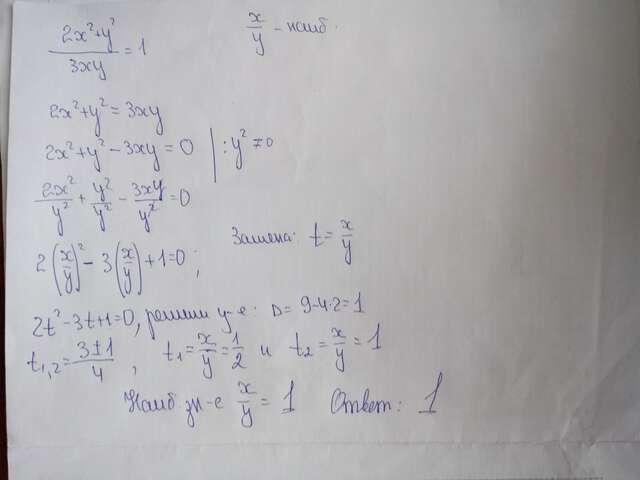 (2x²+y²)/(3xy) = 1   x/y - наиб.
2x²+y² = 3xy
2x²+y² - 3xy = 0 | : y² ≠0
2x²/y² + y²/y² - 3xy/y² = 0
Замена: t = x/y
2(x/y)² - 3(x/y) + 1 = 0;
2t² - 3t + 1 = 0, решим у-е: D = 9 - 4·2 = 1
t₁,₂ = (3±1)/4, t₁ = x/y = 1/2 и t₂ = x/y = 1
Наиб зн-е x/y = 1 Ответ: 1